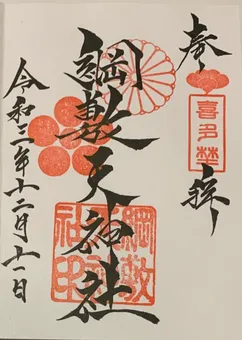 奉拝
喜多埜
綱敷天神社
綱敷天神社神印
令和三年十二月十一日